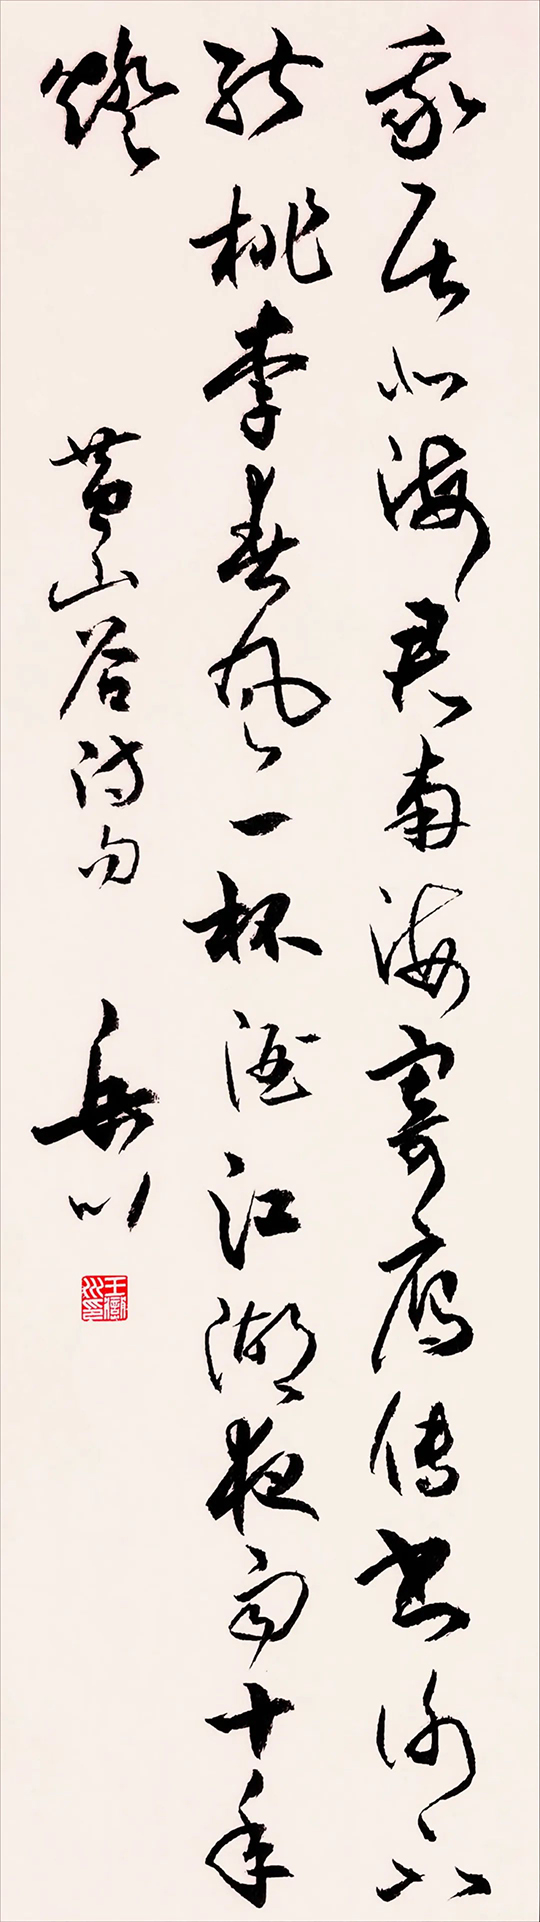 我居北海君南海寄雁傳書謝不
能桃李春風一杯酒江湖夜雨十年
燈
黃山谷詩句 岳川
王嶽川印